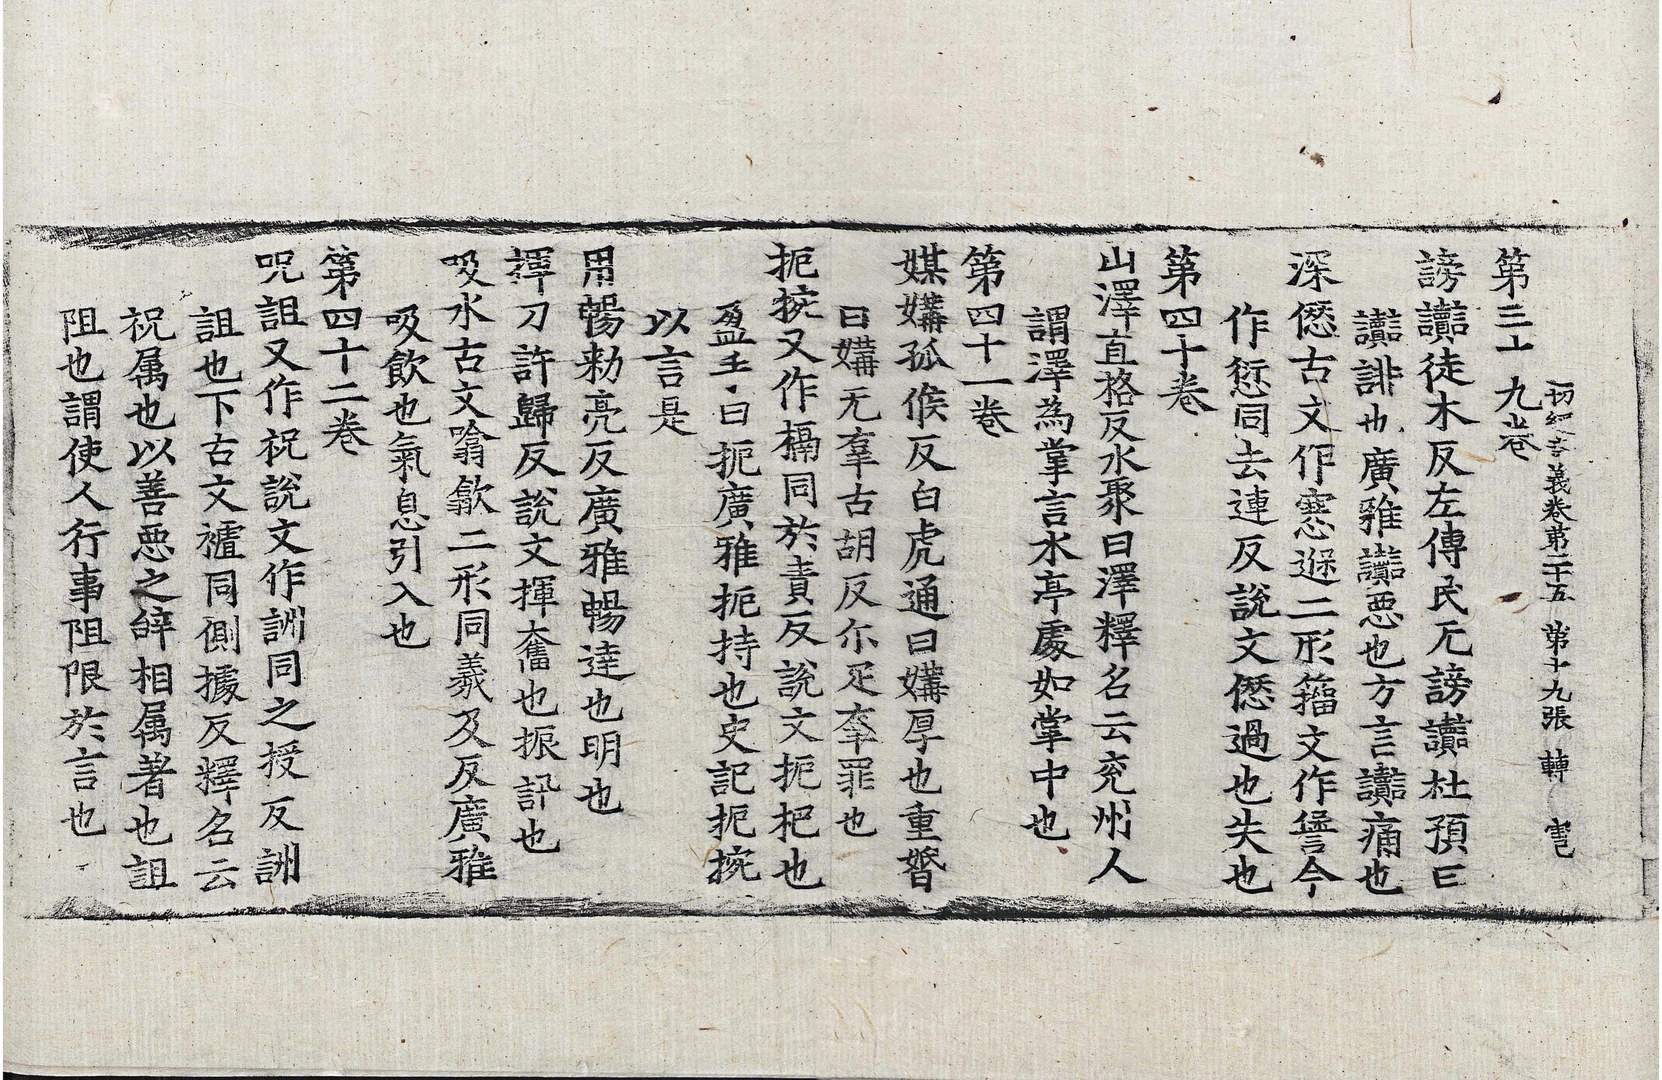 切經音義卷第二十五 第十九張 轉
第三十九卷
謗讟徒木反左傳民无謗讟杜預曰
讟誹也廣雅讟惡也方言讟痛也
深僁古文作𠎝遃二形籀文作諐今
作愆同去連反說文僁過也失也
第四十卷
山澤直格反水聚曰澤釋名云兖州人
謂澤為掌言水亭處如掌中也
第四十一卷
媒媾孤候反白虎通曰媾厚也重婚
曰媾无辜古胡反尒疋辜罪也
扼捥又作搹同於責反說文扼把也
盈手曰扼廣雅扼持也史記扼捥
以言是
用暢勑亮反廣雅暢達也明也
揮刀許歸反說文揮奮也振訊也
吸水古文噏歙二形同羲及反廣雅
吸飲也氣息引入也
第四十二卷
呪詛又作祝說文作詶同之授反詶
詛也下古文禯同側據反釋名云
祝属也以善惡之辝相属著也詛
阻也謂使人行事阻限於言也